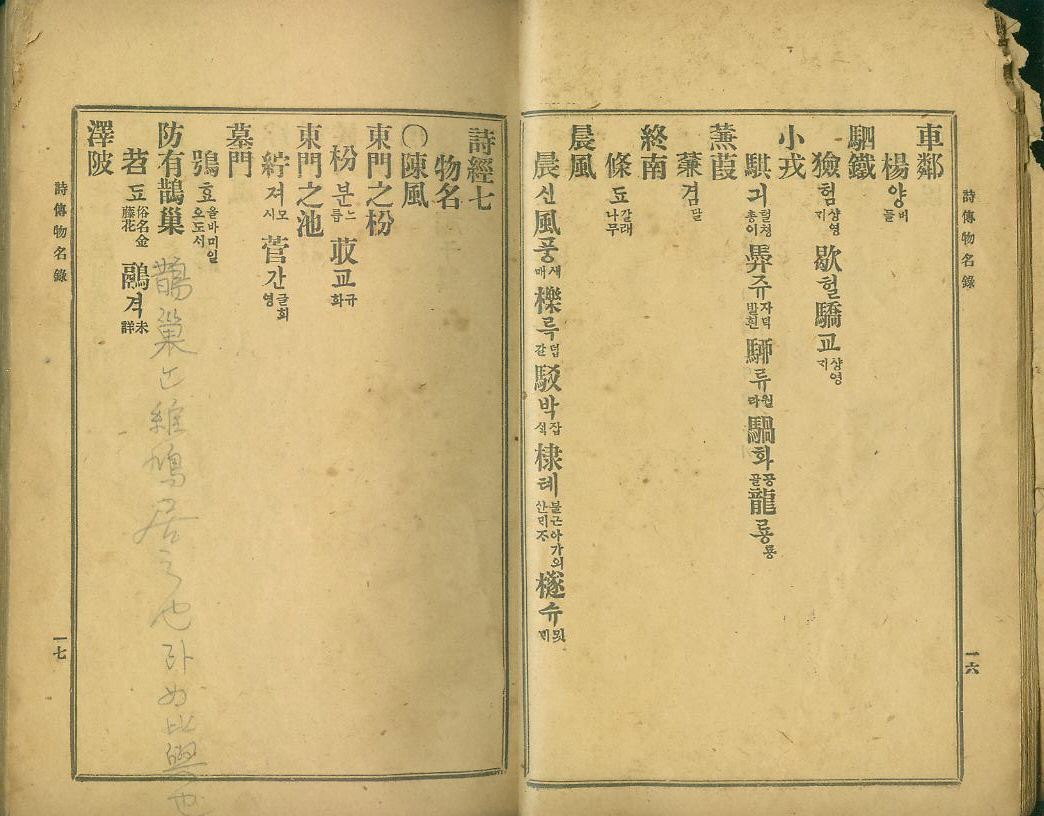 詩傳物名錄
一六
車鄰
楊양비들
駟鐵
獫험샹영지 歇헐驕교샹영지
小戎
騏긔텰쳥총이 馵쥬자덕발흰 駵류월라 騧화공골龍룡룡
蒹葭
蒹겸달
終南
條됴갈래나무
晨風
晨신風풍새매 櫟륵덥갈 駁박잡식 棣톄불근아가의산믜 檖슈
詩經七
物名
〇陳風
東門之枌
枌분느릅 荍교규화
東門之池
紵져모시 菅간글희영
墓門
鴞효올바미일오도시
防有鵲巢
苕됴俗名金藤花 鷊격未詳
澤陂
鵲巢 維鳩居之也라
詩傳物名錄
一七